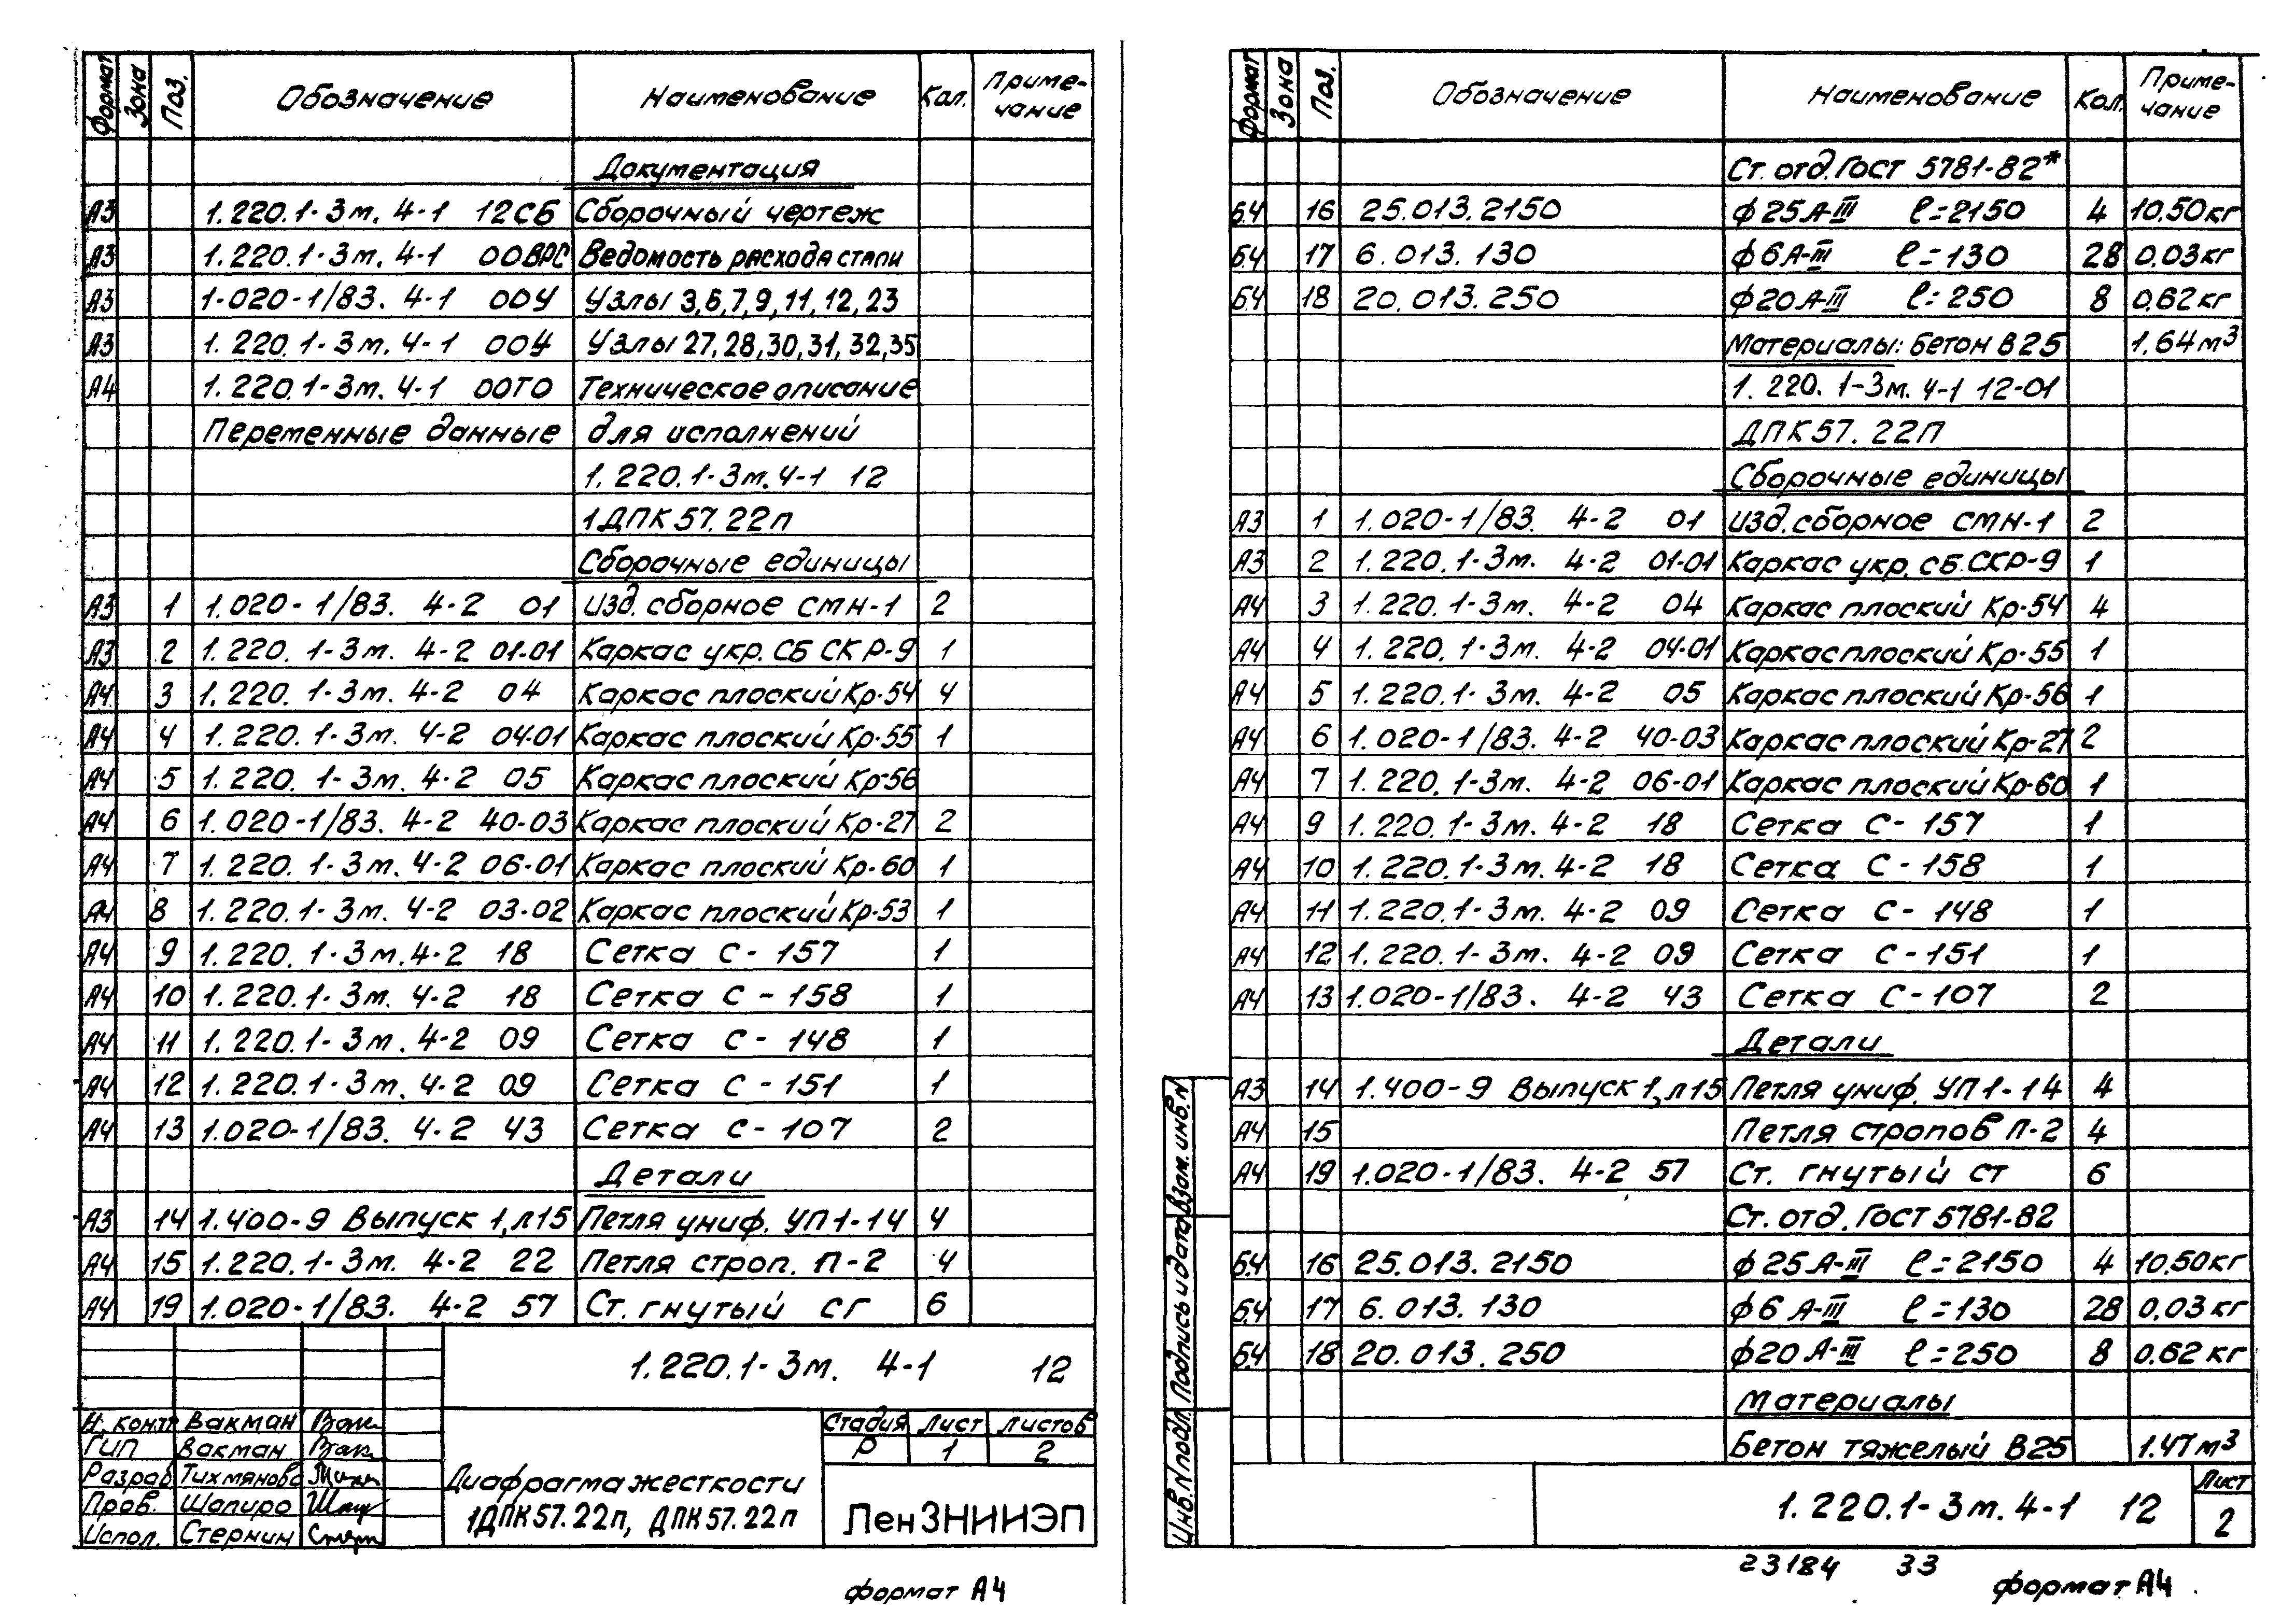 Формат Зона Поз. Обозначение Наименование Кол. Приме-чание
Документация
А3 1.220.1-3м. 4-1 12СБ Сборочный чертеж
А3 1.220.1-3м. 4-1 00ВРС Ведомость расхода стали
А3 1.020-1/83. 4-1 00У Узлы 3,6,7,9,11,12,23
А3 1.220.1-3м. 4-1 00У Узлы 27,28,30,31,32,35
А4 1.220.1-3м. 4-1 00ТО Техническое описание
Переменные данные для исполнений
1.220.1-3м.4-1 12
1ДПК57.22п
Сборочные единицы
А3 1 1.020-1/83. 4-2 01 Изд.сборное СМН-1 2
А3 2 1.220.1-3м. 4-2 01-01 Каркас укр.СБ СКР-9 1
А4 3 1.220.1-3м. 4-2 04 Каркас плоский Кр-54 4
А4 4 1.220.1-3м. 4-2 04-01 Каркас плоский Кр-55 1
А4 5 1.220.1-3м. 4-2 05 Каркас плоский Кр-56
А4 6 1.020-1/83. 4-2 40-03 Каркас плоский Кр-27 2
А4 7 1.220.1-3м. 4-2 06-01 Каркас плоский Кр-60 1
А4 8 1.220.1-3м. 4-2 03-02 Каркас плоский Кр-53 1
А4 9 1.220.1-3м.4-2 18 Сетка С-157 1
А4 10 1.220.1-3м. 4-2 18 Сетка С-158 1
А4 11 1.220.1-3м. 4-2 09 Сетка С-148 1
А4 12 1.220.1-3м. 4-2 09 Сетка С-151 1
А4 13 1.020-1/83. 4-2 43 Сетка С-107 2
Детали
А3 14 1.400-9 Выпуск 1,л15 Петля униф. УП1-14 4
А4 15 1.220.1-3м. 4-2 22 Петля строп. П-2 4
А4 19 1.020-1/83. 4-2 57 Ст. гнутый СГ 6
1.220.1-3м. 4-1 12
Н. контр Вакман
ГИП Вакман
Разраб Тихмянова
Пров. Шапиро
Испол. Стернин
Диафрагма жесткости
1ДПК57.22п, ДПК57.22п
Стадия Лист Листов
Р 1 2
ЛенЗНИИЭП
формат А4
Формат Зона Поз. Обозначение Наименование Кол. Приме-чание
Ст.отд.ГОСТ 5781-82*
Б4 16 25.013.2150 ф25А-III ℓ=2150 4 10.50кг
Б4 17 6.013.130 ф6А-III ℓ=130 28 0.03кг
Б4 18 20.013.250 ф20А-III ℓ=250 8 0.62кг
Материалы: Бетон В25 1.64м³
1.220.1-3м.4-1 12-01
ДПК57.22П
Сборочные единицы
А3 1 1.020-1/83. 4-2 01 Изд.сборное СМН-1 2
А3 2 1.220.1-3м. 4-2 01-01 Каркас укр.СБ.СКР-9 1
А4 3 1.220.1-3м. 4-2 04 Каркас плоский Кр-54 4
А4 4 1.220.1-3м. 4-2 04-01 Каркас плоский Кр-55 1
А4 5 1.220.1-3м. 4-2 05 Каркас плоский Кр-56 1
А4 6 1.020-1/83. 4-2 40-03 Каркас плоский Кр-27 2
А4 7 1.220.1-3м. 4-2 06-01 Каркас плоский Кр-60 1
А4 9 1.220.1-3м. 4-2 18 Сетка С-157 1
А4 10 1.220.1-3м. 4-2 18 Сетка С-158 1
А4 11 1.220.1-3м. 4-2 09 Сетка С-148 1
А4 12 1.220.1-3м. 4-2 09 Сетка С-151 1
А4 13 1.020-1/83. 4-2 43 Сетка С-107 2
Детали
А3 14 1.400-9 Выпуск 1,л15 Петля униф. УП1-14 4
А4 15 Петля стропов П-2 4
А4 19 1.020-1/83. 4-2 57 Ст. гнутый СТ 6
Ст.отд.ГОСТ 5781-82
Б4 16 25.013.2150 ф25А-III ℓ=2150 4 10.50кг
Б4 17 6.013.130 ф6А-III ℓ=130 28 0.03кг
Б4 18 20.013.250 ф20А-III ℓ=250 8 0.62кг
Материалы
Бетон тяжелый В25 1.47м³
Инв.N подл. Подпись и дата Взам.инв.N
1.220.1-3м.4-1 12
Лист
2
23184 33
формат А4